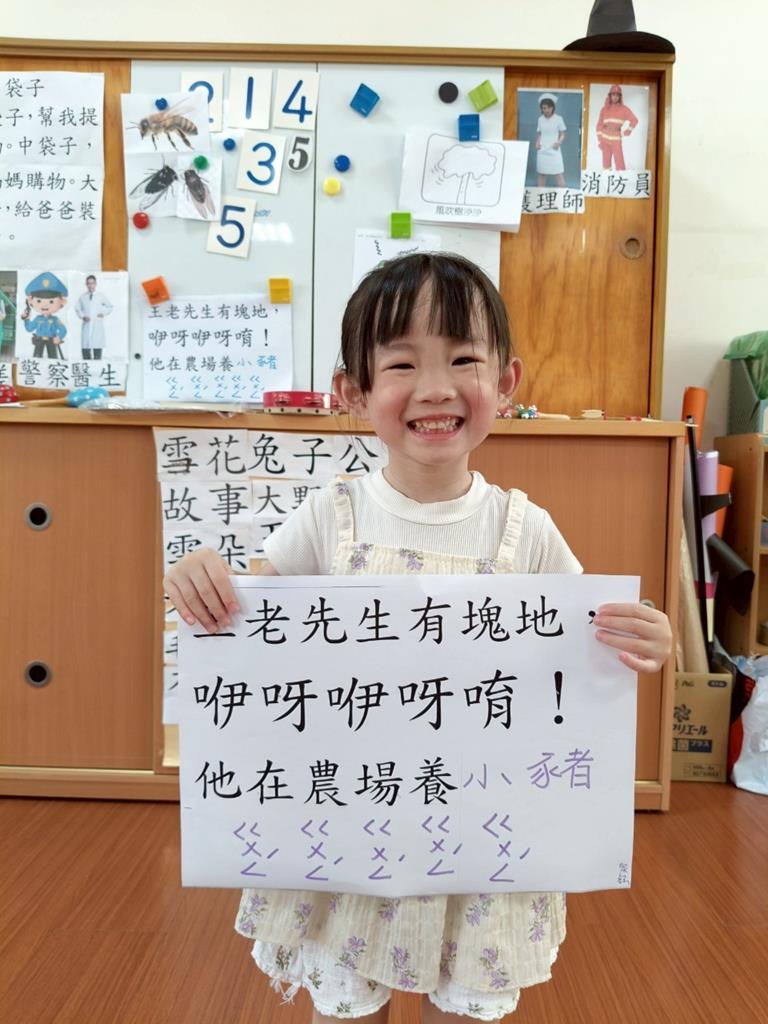 袋子
子，幫我提
。中袋子，
媽購物。大
，給爸爸裝
。
214
35
5
風吹樹沙沙
護理師
消防員
警察醫生
王老先生有塊地，
咿呀咿呀唷！
他在農場養小豬
ㄍㄨㄥˊ ㄍㄨㄥˊ ㄍㄨㄥˊ ㄍㄨㄥˊ ㄍㄨㄥˊ
雪花兔子公
故事大野
雲朵
王老先生有塊地，
咿呀咿呀唷！
他在農場養小豬
ㄍㄨㄥˊ ㄍㄨㄥˊ ㄍㄨㄥˊ ㄍㄨㄥˊ ㄍㄨㄥˊ